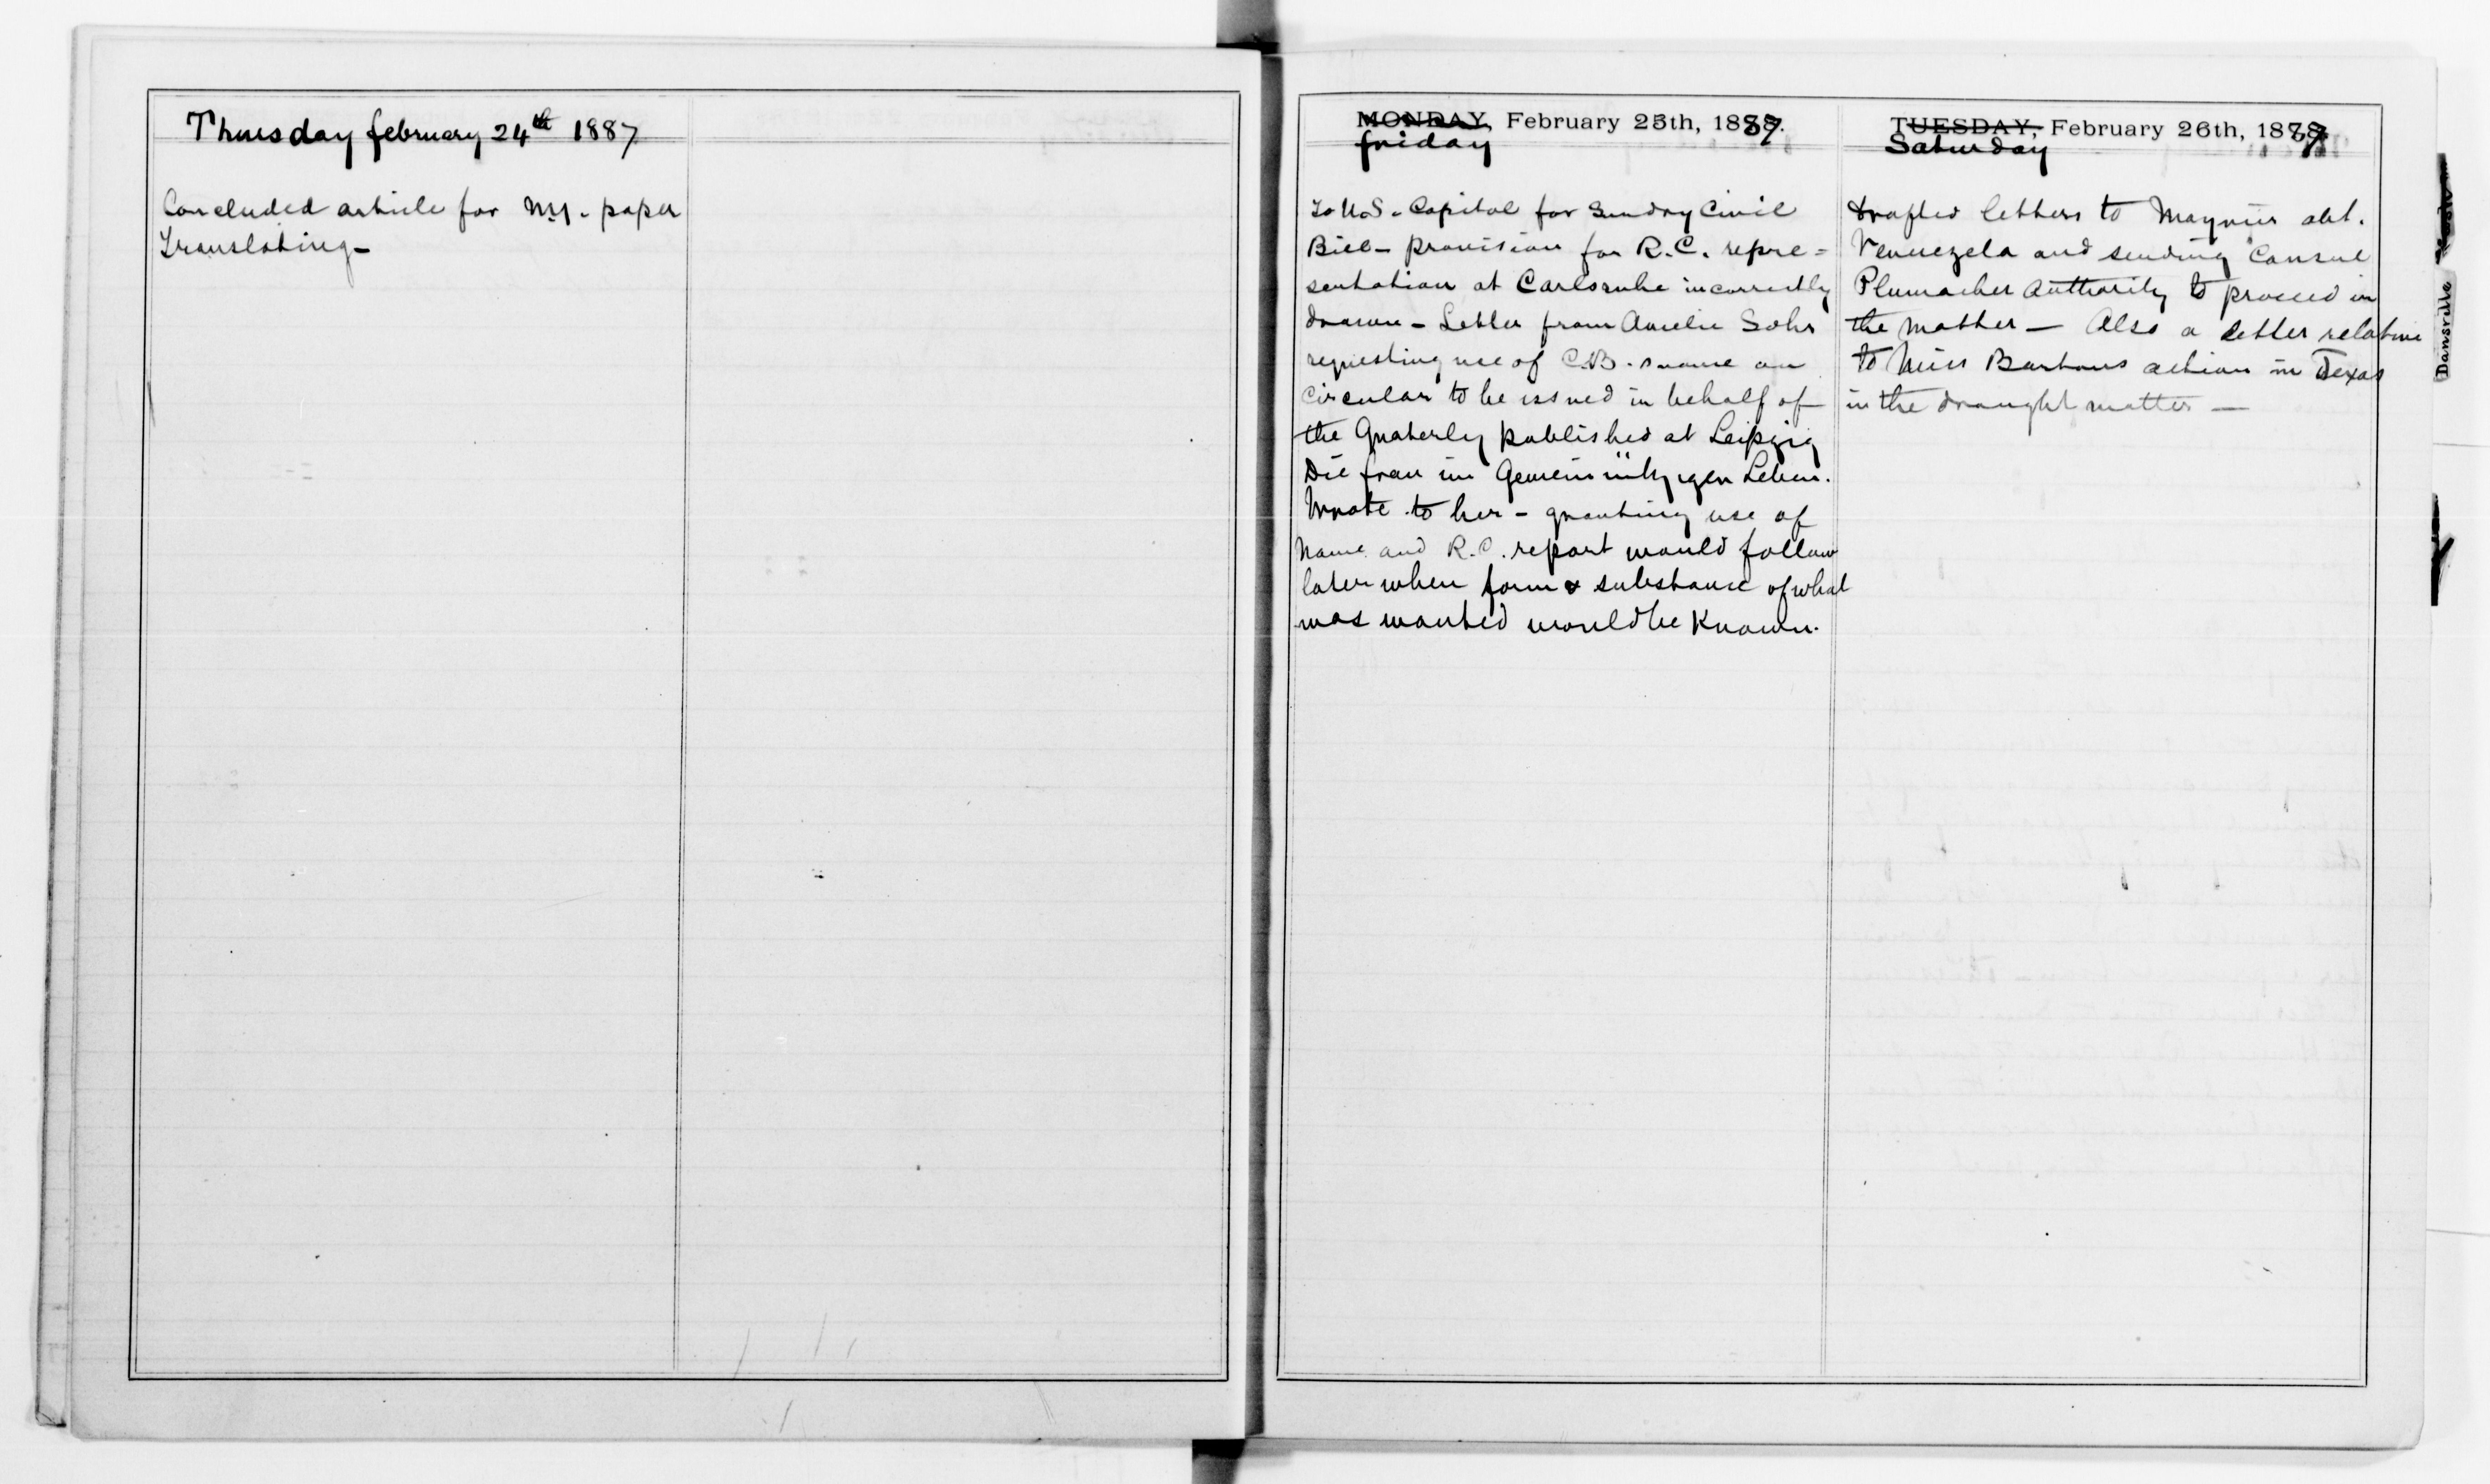 Thursday february 24th 1887
Concluded article for N.Y. paper
Translating -
MONDAY, February 25th, 1887.
friday
To U.S. Capitol for Sundry Civil
Bill - provision for R.C. repre =
sentation at Carlsruhe incorrectly
drawn - Letter from Amelie Sohr
requesting use of C.B.s name on
Circular to be issued in behalf of
the Quaterly published at Leipzig
Die frau im Gemeinnützigen Leben.
Wrote to her - granting use of
Name and R.C. report would follow
later when form & substance of what
was wanted would be Known.
TUESDAY, February 26th, 1887
Saturday
Drafted letters to Moynier abt.
Venuezela and sending Consul
Plumacher Authority to proceed in
the matter — Also a letter relative
to Miss Bartons action in Texas
in the draught matter —
Dansville